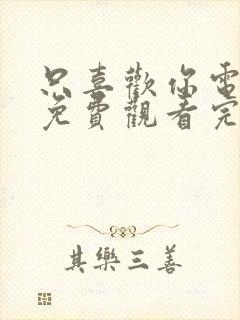 只喜歡你電
免費觀看完
其樂三善